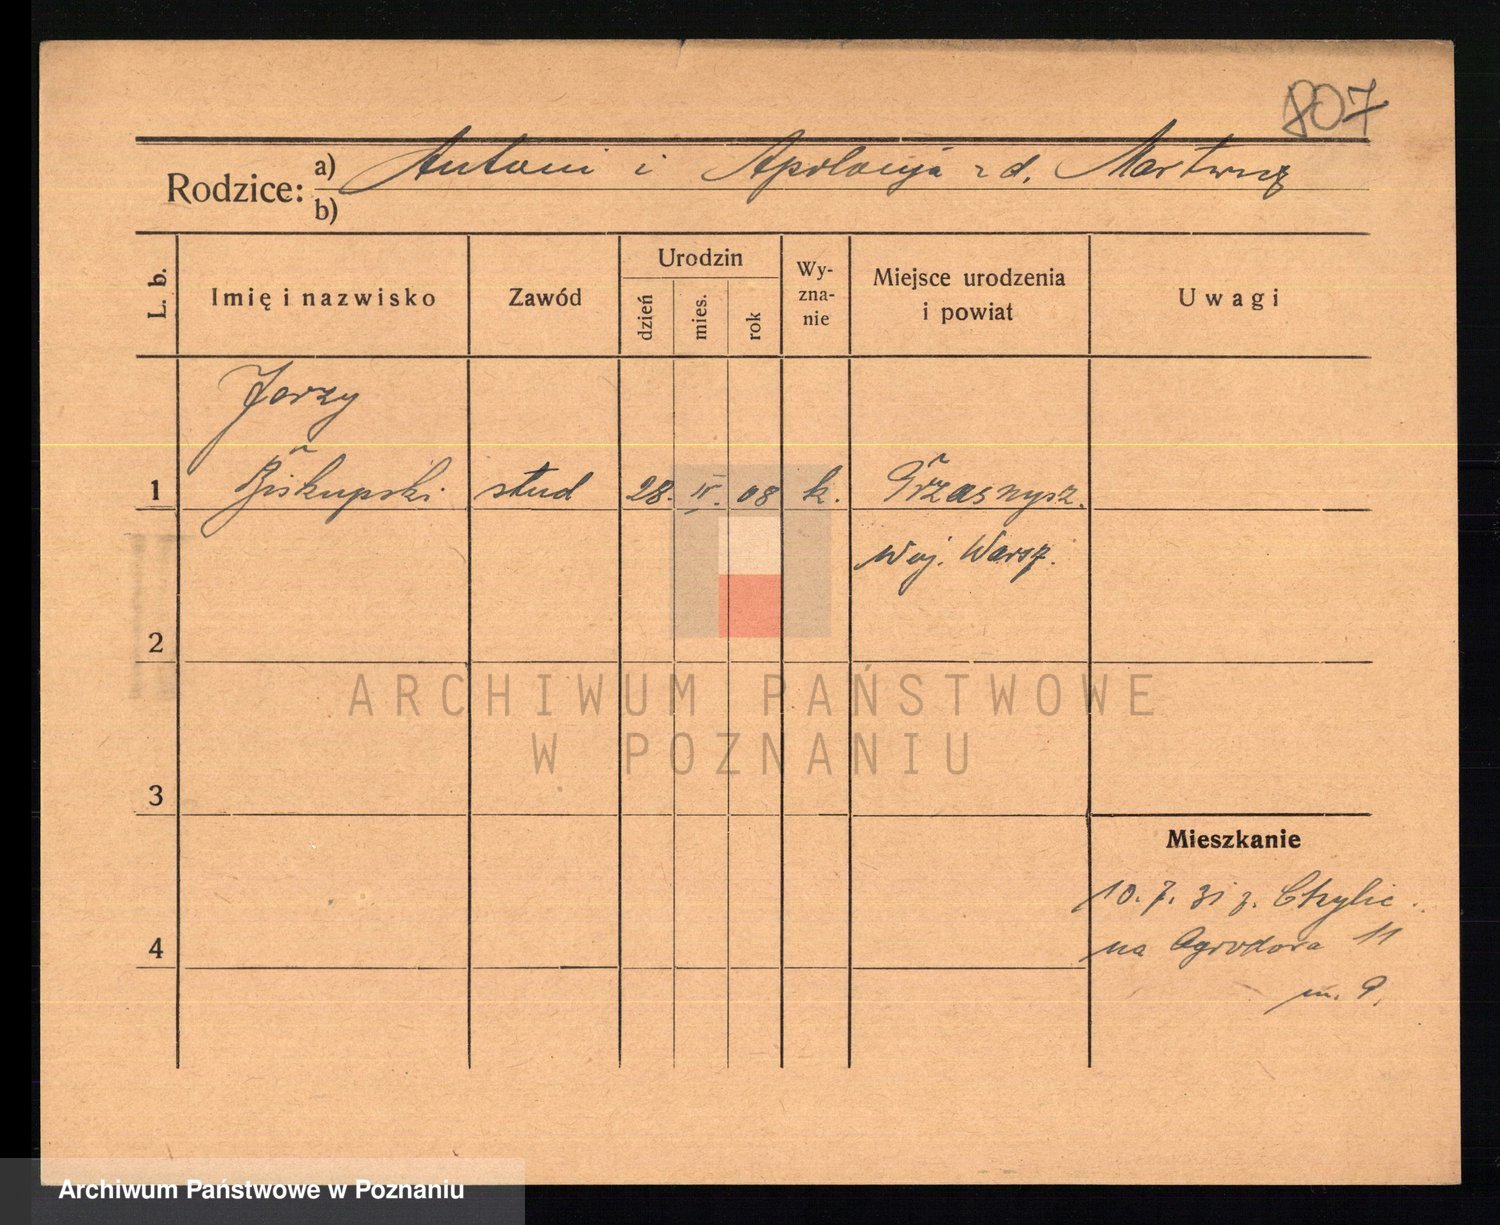 807
Rodzice: a) Antoni i Apolonja z d.
b)
L. b. Imię i nazwisko Zawód Urodzin dzień mies. rok Wy-zna-nie Miejsce urodzenia i powiat Uwagi
Jerzy
1 Biskupski stud 28. IV. 08 k. Przasnysz.
Woj. Warsz.
2
ARCHIWUM PAŃSTWOWE
W POZNANIU
3
Mieszkanie
10. 7. 31 z. Chylic
4 na Ogrodora 11
m. 9.
Archiwum Państwowe w Poznaniu